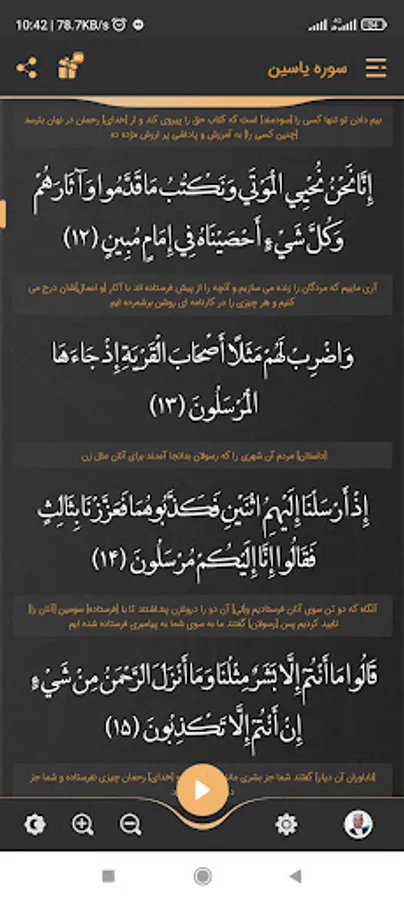 10:42 | 78.7KB/s
سوره یاسین
بیم دادن تو تنها کسی را [سودمند] است که کتاب حق را پیروی کند و از [خدای] رحمان در نهان بترسد
[چنین کسی را] به آمرزش و پاداشی پر ارزش مژده ده
إِنَّا نَحْنُ نُحْيِي الْمَوْتَى وَنَكْتُبُ مَا قَدَّمُوا وَآثَارَهُمْ
وَكُلَّ شَيْءٍ أَحْصَيْنَاهُ فِي إِمَامٍ مُبِينٍ ﴿۱۲﴾
آری ماییم که مردگان را زنده می سازیم و آنچه را از پیش فرستاده اند با آثار [و اعمال]شان درج می
کنیم و هر چیزی را در کارنامه ای روشن برشمرده ایم
وَاضْرِبْ لَهُمْ مَثَلًا أَصْحَابَ الْقَرْيَةِ إِذْ جَاءَهَا
الْمُرْسَلُونَ ﴿۱۳﴾
[داستان] مردم آن شهری را که رسولان بدانجا آمدند برای آنان مثل زن
إِذْ أَرْسَلْنَا إِلَيْهِمُ اثْنَيْنِ فَكَذَّبُوهُمَا فَعَزَّزْنَا بِثَالِثٍ
فَقَالُوا إِنَّا إِلَيْكُمْ مُرْسَلُونَ ﴿۱۴﴾
آنگاه که دو تن سوی آنان فرستادیم و[لی] آن دو را دروغزن پنداشتند تا با [فرستاده] سومین [آنان را]
تایید کردیم پس [رسولان] گفتند ما به سوی شما به پیامبری فرستاده شده ایم
قَالُوا مَا أَنْتُمْ إِلَّا بَشَرٌ مِثْلُنَا وَمَا أَنْزَلَ الرَّحْمَنُ مِنْ شَيْءٍ
إِنْ أَنْتُمْ إِلَّا تَكْذِبُونَ ﴿۱۵﴾
[ناباوران آن دیار] گفتند شما جز بشری مانند و [خدای] رحمان چیزی نفرستاده و شما جز